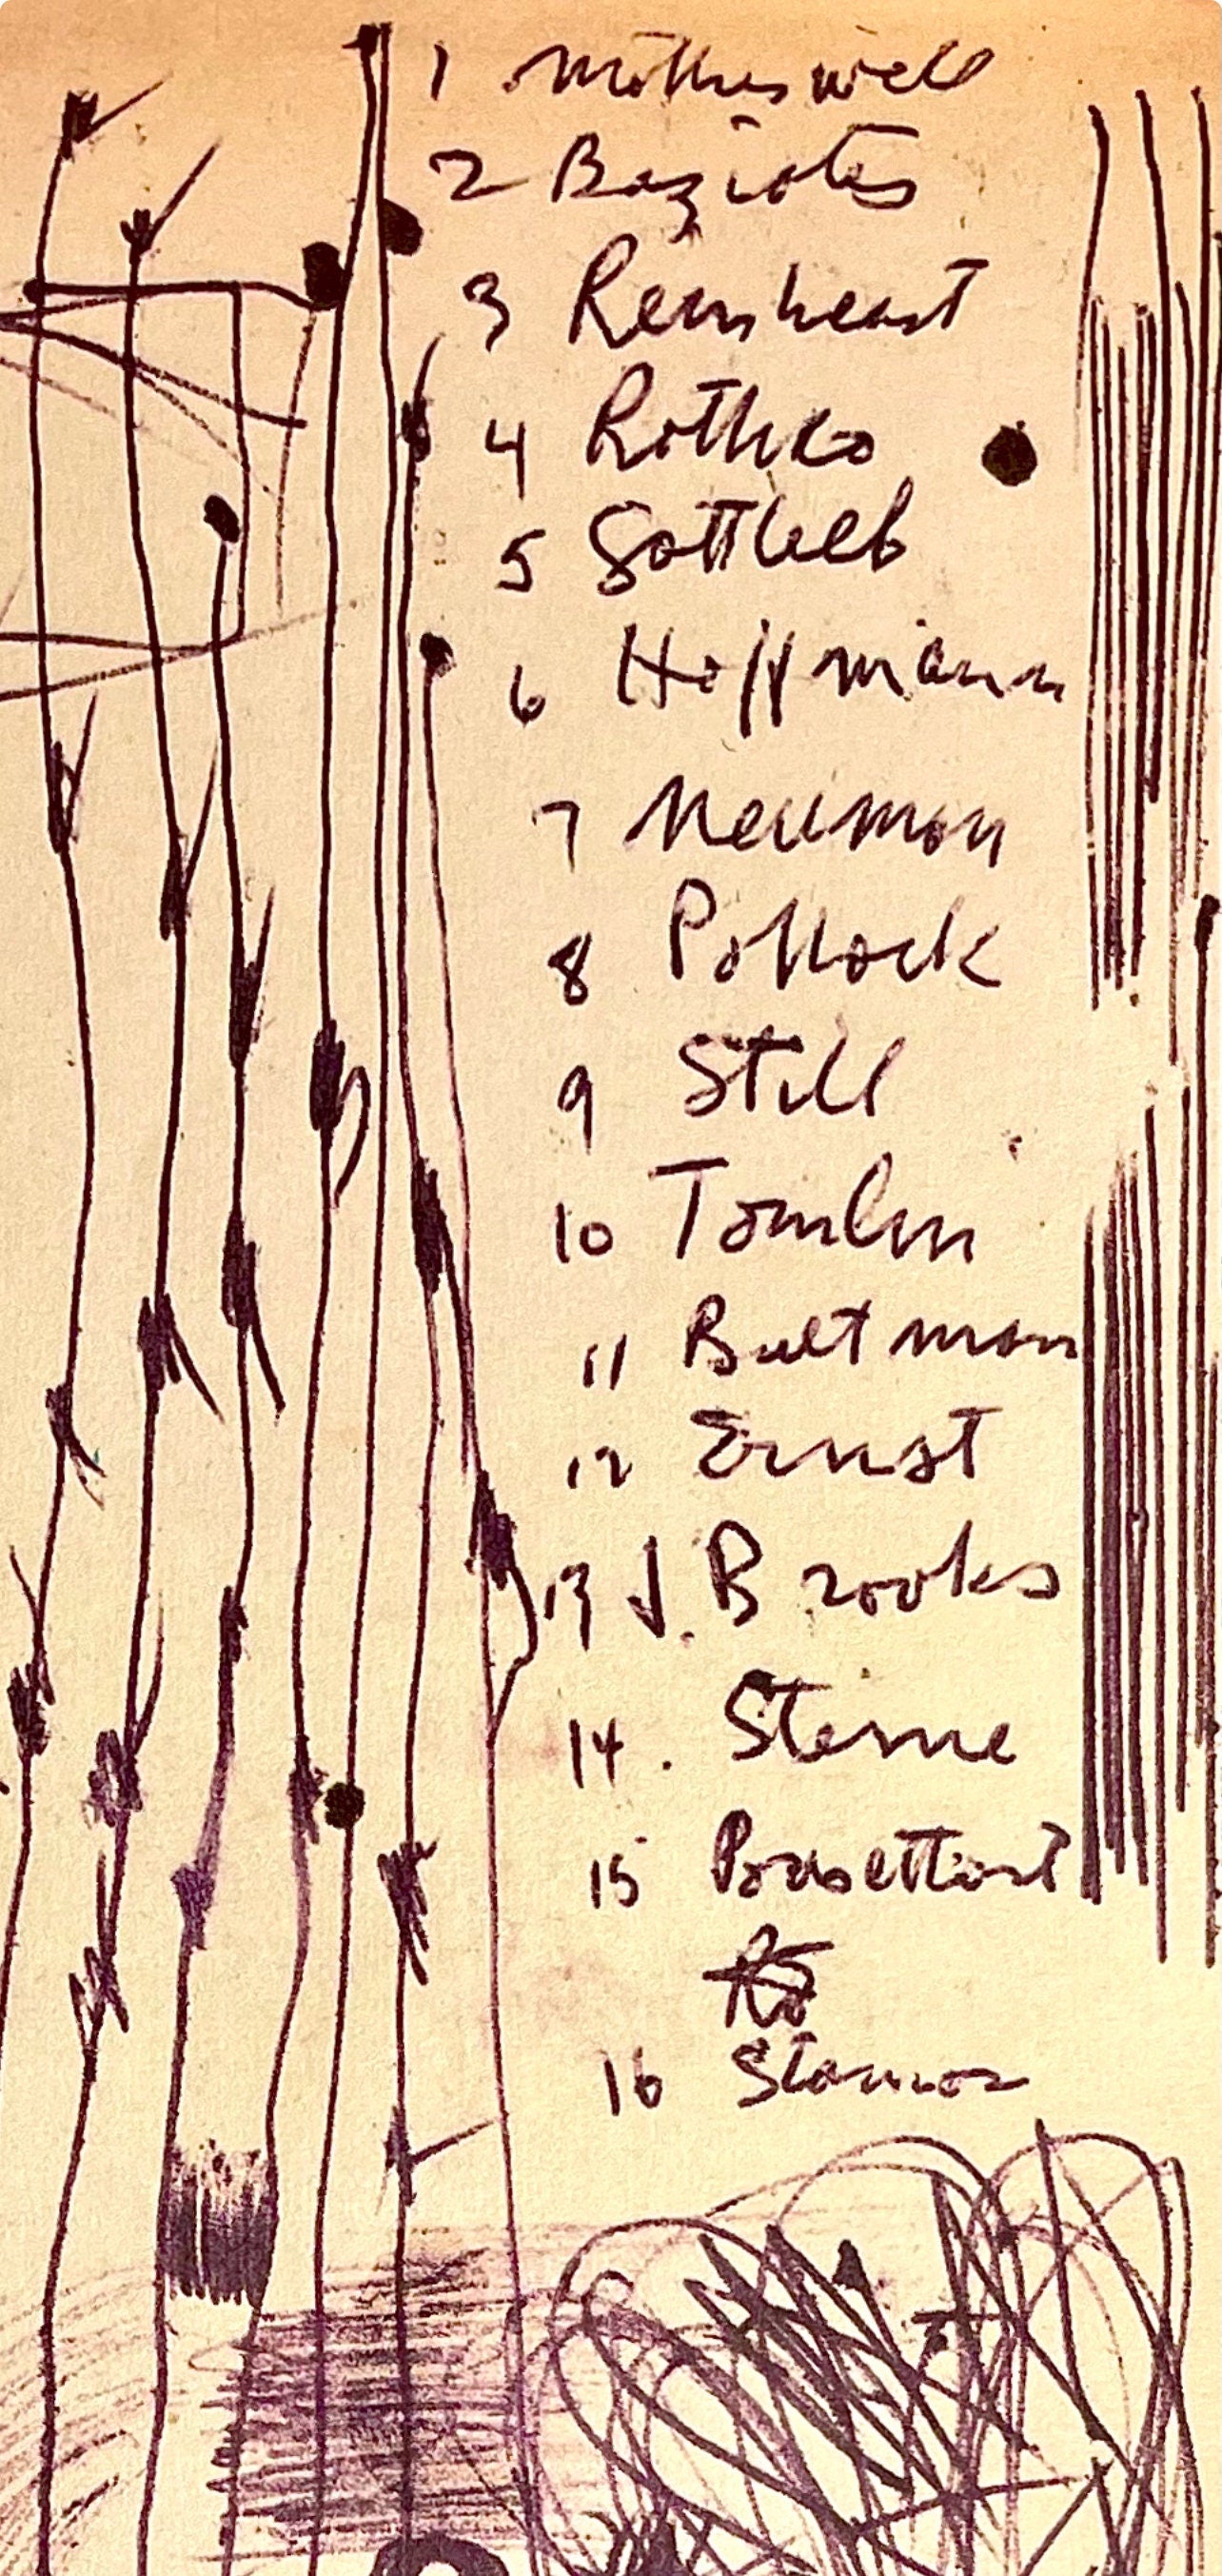 1 Motherwell
2 Baziotes
3 Reinheart
4 Rothko
5 Gottlieb
6 Hoffmann
7 Newman
8 Pollock
9 Still
10 Tomlin
11 Bultman
12 Ernst
13 J. Brooks
14. Sterne
15 Pousettart
16 Stamos